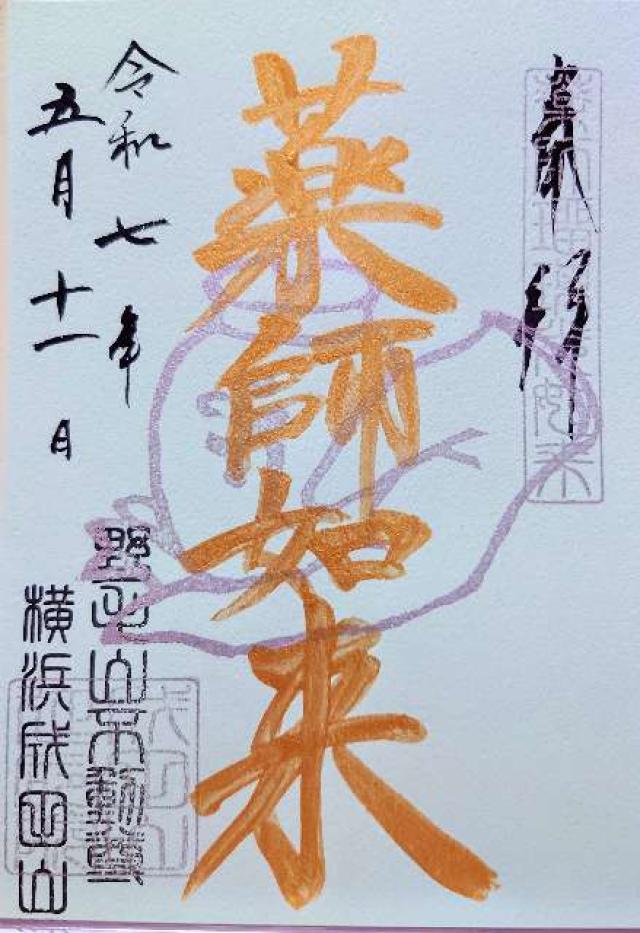 奉拝
薬師如来
令和七年
五月十一日
野毛山不動尊
横浜成田山